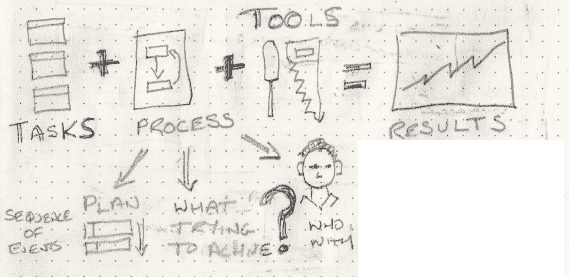 TOOLS
+ + =
TASKS PROCESS RESULTS
PLAN
SEQUENCE
OF
EVENTS
WHAT
TRYING
TO ACHIVE
?
WHO
WITH